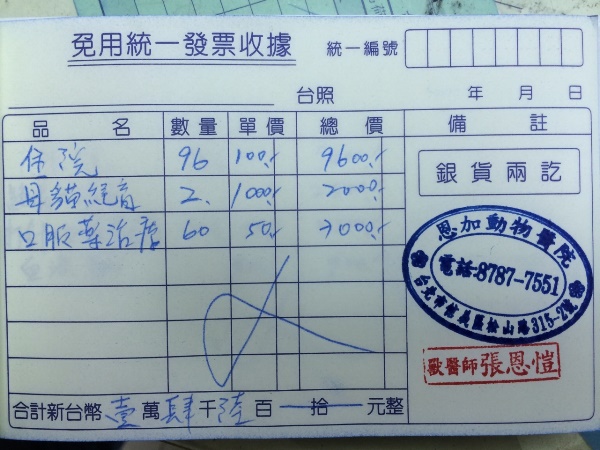 免用統一發票收據 統一編號
台照 年 月 日
品名 數量 單價 總價 備註
住院 96 100.- 9600.-
母貓絕育 2. 1000.- 2000.-
口服藥治療 60 50.- 3000.-
銀貨兩訖
恩加動物醫院
電話:8787-7551
台北市信義區松山路315-2號
獸醫師 張恩愷
合計新台幣 壹 萬 肆 千 陸 百 一 拾 元整